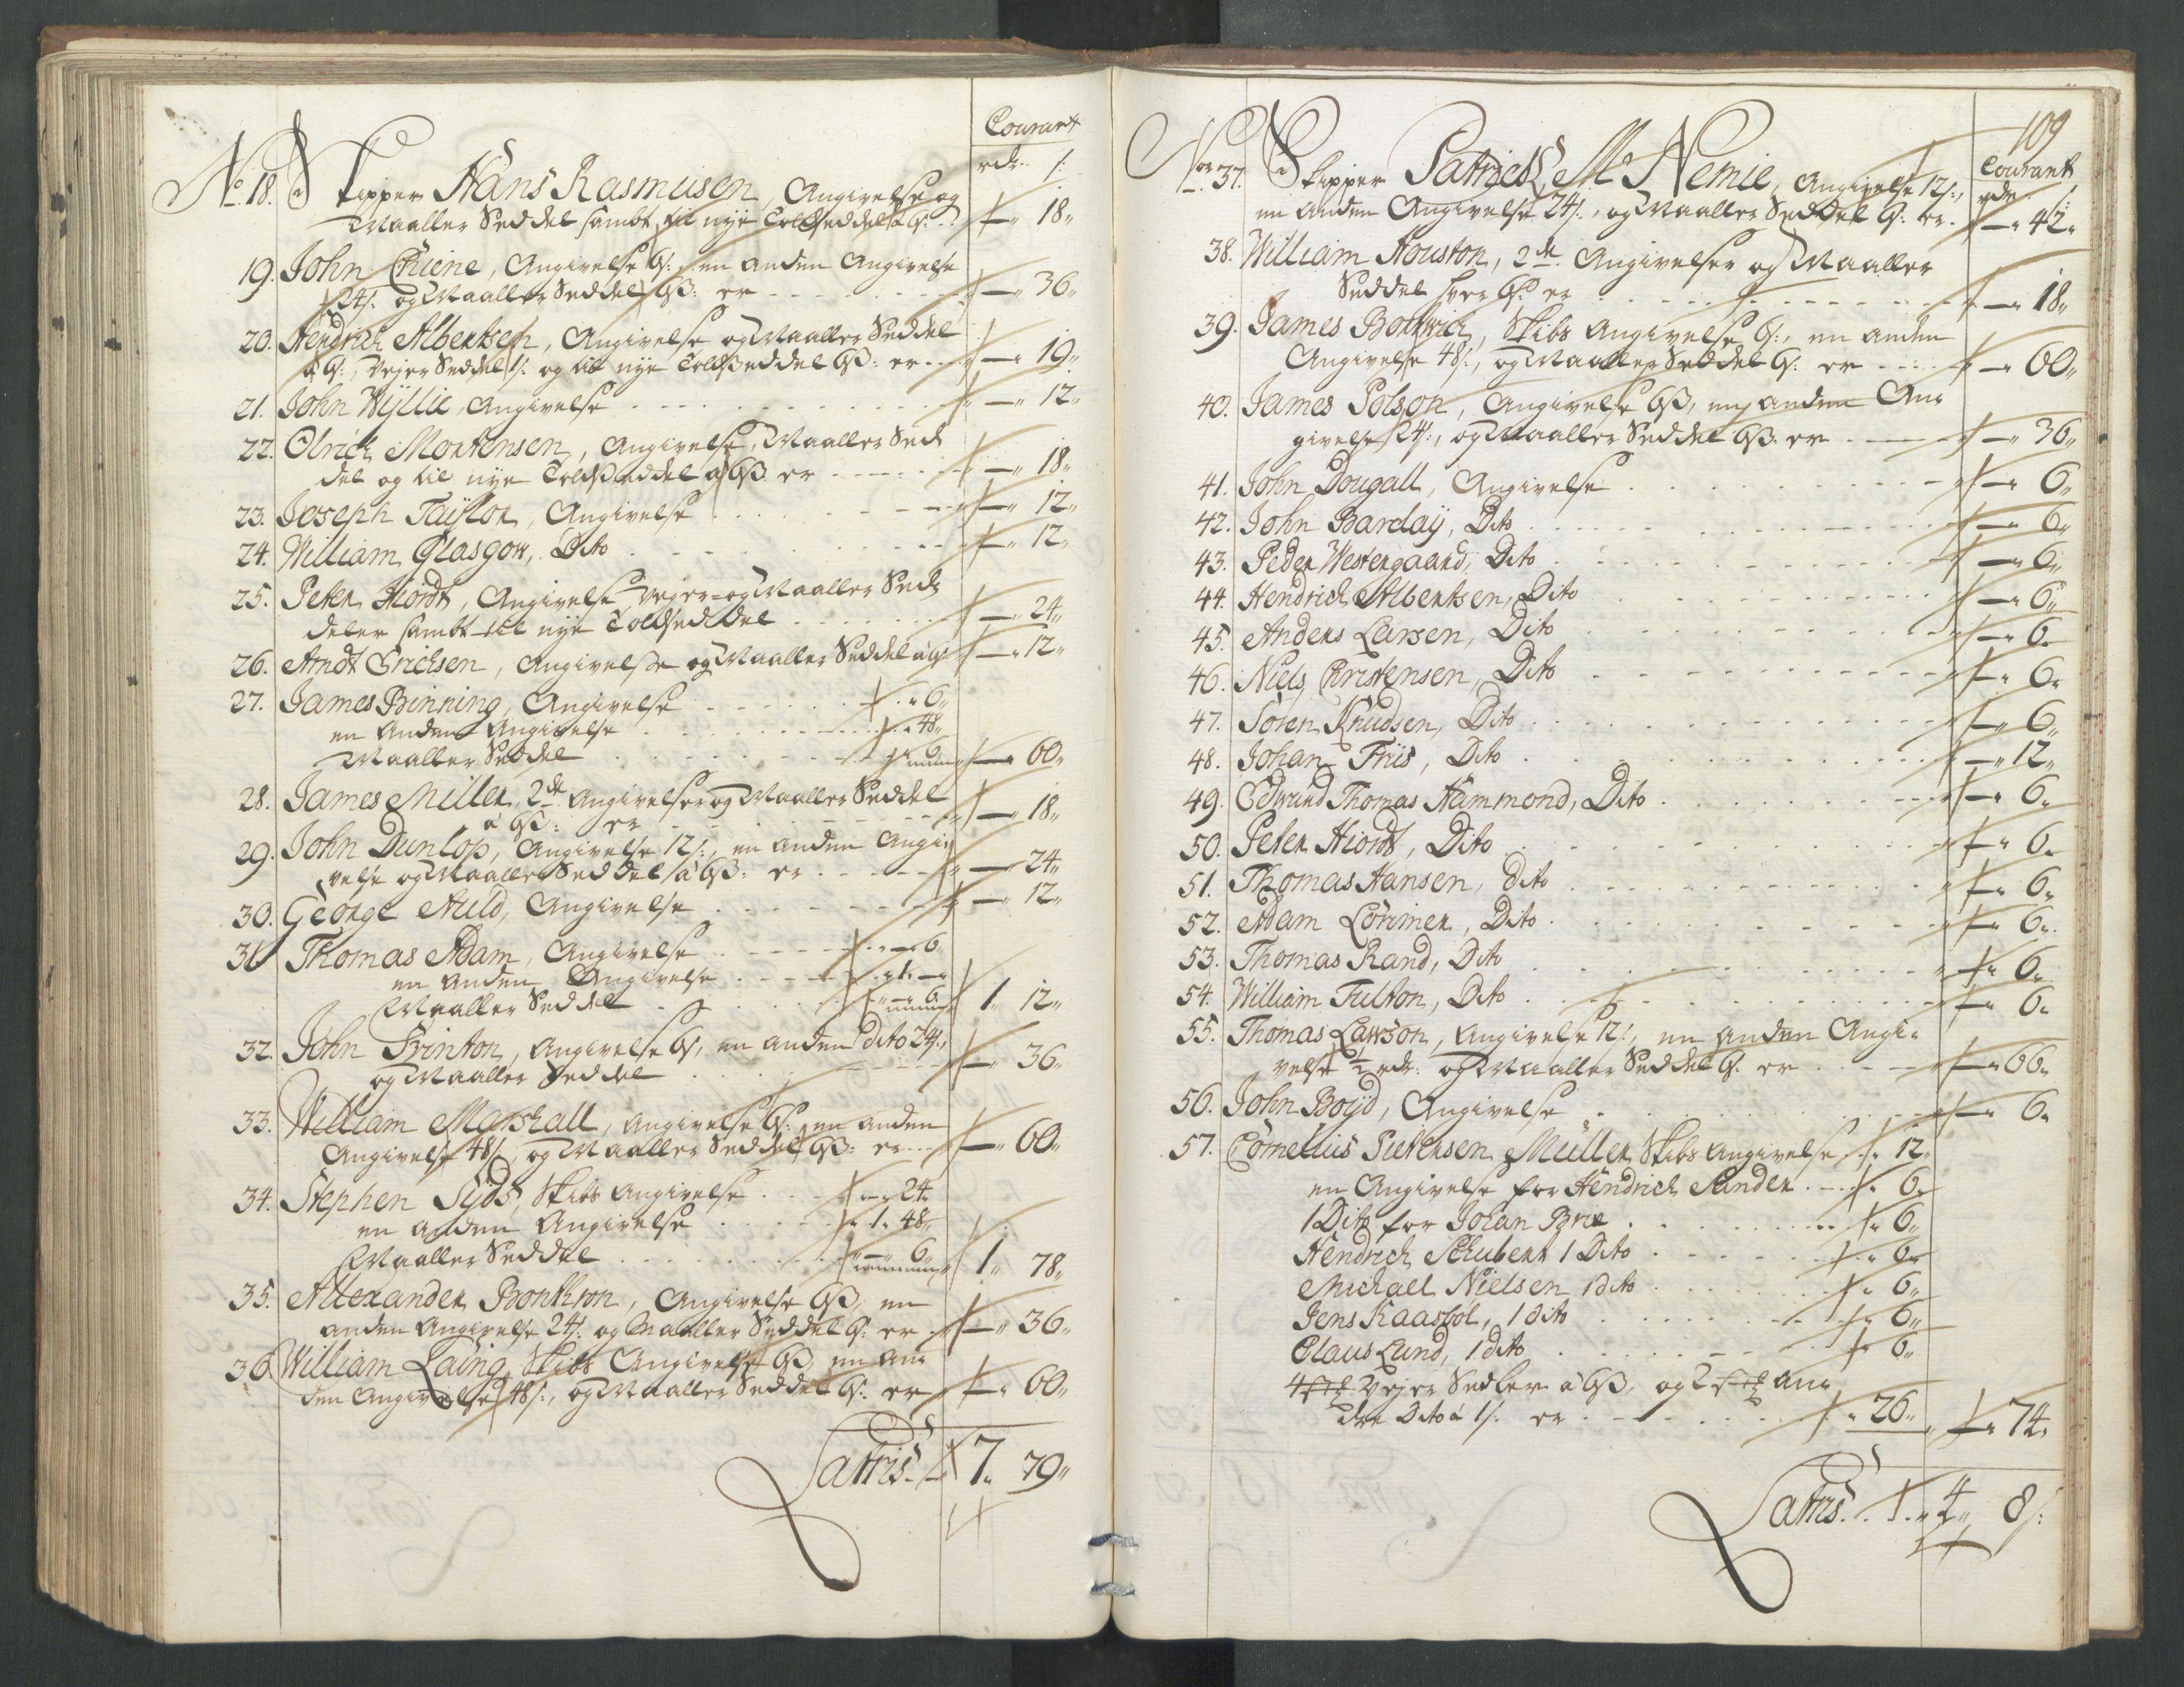 Courant
rdr. /:
No 18. Skipper Hans Rasmusen, Angivelse og
Maaller Seddel samt til nye Toldseddel á 6/: — 18"
19. John Chiene, Angivelse 6/: en anden Angivelse
24/: og Maaller Seddel 6ß: er — 36"
20. Hendrich Albertsen, Angivelse og Maaller Seddel
á 6/:, Vejer Seddel 1/: og til nye Toldseddel 6ß: er — 19"
21. John Wyllie, Angivelse — 12"
22. Olrich Mortensen, Angivelse, Maaller Sed
del og til nye Toldseddel á 6ß er — 18"
23. Joseph Taylor, Angivelse — 12"
24. William Glasgow, Dito — 12"
25. Peter Hiordt, Angivelse Vejer og Maaller Sed
deler samt til nye Toldseddel — 24"
26. Arndt Erichsen, Angivelse og Maaller Seddel á 6/: — 12"
27. James Binning, Angivelse " 6"
en anden Angivelse " 48"
Maaller Seddel " 6" — 60"
28. James Miller, 2de Angivelser og Maaller Seddel
á 6ß: er — 18"
29. John Dunlop, Angivelse 12/:, en anden Angi
velse og Maaller Seddel á 6ß: er — 24"
30. George Auld, Angivelse — 12"
31 Thomas Adam, Angivelse — 6"
en anden Angivelse 1 " —
Maaller Seddel — 6" 1" 12"
32. John Svinton, Angivelse 6/, en anden dito 24/:,
og Maaller Seddel — 36"
33. William Marshall, Angivelse 6/: en anden
Angivelse 48/:, og Maaller Seddel 6ß: er — 60"
34. Stephen Syds, Skibs Angivelse — 24"
en anden Angivelse 1" 48"
Maaller Seddel — 6" 1" 78"
35. Allexander Bonthron, Angivelse 6ß, en
anden Angivelse 24/: og Maaller Seddel 6/: er — 36"
36. William Laing, Skibs Angivelse 6ß, en An
den Angivelse 48/:, og Maaller Seddel 6/: er — 60"
Latris 7" 79"
109
Courant
rdr. /:
No 37. Skipper Patrick Mc Nemie, Angivelse 12/:,
en anden Angivelse 24/:, og Maaller Seddel 6/: er — 42"
38. William Houston, 2de Angivelser og Maaller
Seddel hver 6/: er — 18"
39. James Bothwick, Skibs Angivelse 6/:, en anden
Angivelse 48/:, og Maaller Seddel 6/: er — 60"
40. James Polson, Angivelse 6ß, en anden An
givelse 24/:, og Maaller Seddel 6ß er — 36"
41. John Dougall, Angivelse — 6"
42. John Barclaÿ, Dito — 6"
43. Peder Westergaard, Dito — 6"
44. Hendrich Albertsen, Dito — 6"
45. Anders Larsen, Dito — 6"
46. Niels Christensen, Dito — 6"
47. Soren Knudsen, Dito — 6"
48. Johan Friis, Dito — 12"
49. Edvard Thomas Hammond, Dito — 6"
50. Peter Hiordt, Dito — 6"
51. Thomas Hansen, dito — 6"
52. Adam Lorimer, Dito — 6"
53. Thomas Rand, Dito — 6"
54. William Fulton, Dito — 6"
55. Thomas Lawson, Angivelse 12/:, en anden Angi
velse ½ rdr: og Maaller Seddel 6/: er — 66"
56. John Boyd, Angivelse — 6"
57. Cornelius Pietersen Müller, Skibs Angivelse " 12"
en Angivelse for Hendrich Sander " 6"
1 Dito for Johan Brie " 6"
Hendrich Schubert 1 Dito " 6"
Michael Nielsen 1 dito " 6"
Jens Kaasbøl, 1 dito " 6"
Claus Lund, 1 dito " 6"
4 Vejer Sedler á 6ß, og 2 An
dre Dito á 1/: er " 26" — 74"
Latris 4" 8/: